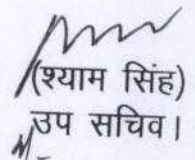 (श्याम सिंह)
उप सचिव।